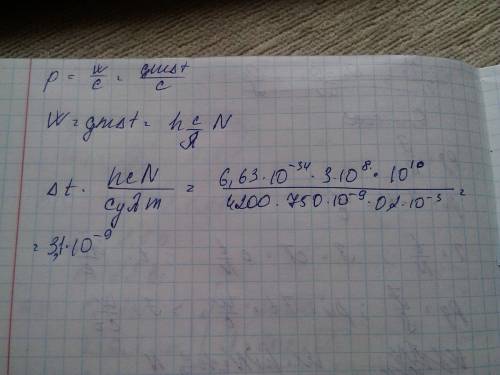 p = W/c = qmΔt/c
W = qmΔt = h c/λ N
Δt = hcN/cyλm = 6,63·10⁻³⁴·3·10⁸·10¹⁰/4200·750·10⁻⁹·0,2·10⁻³ =
= 3,1·10⁻⁹